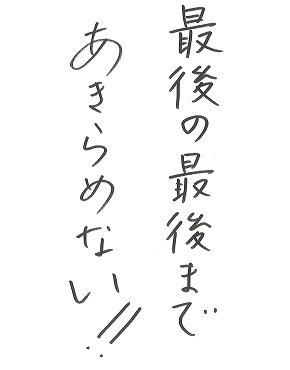 最後の最後まで
あきらめない!!